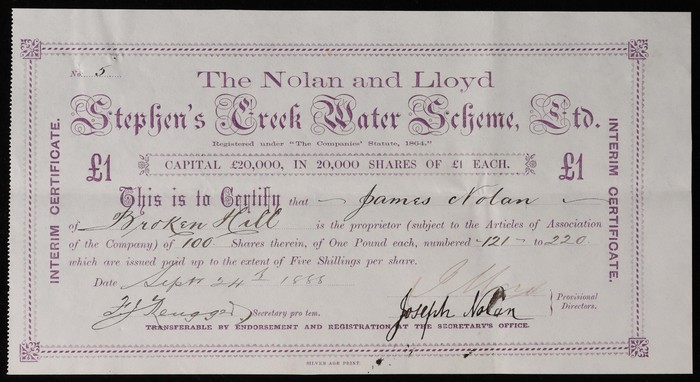 No. 5
The Nolan and Lloyd
Stephen's Creek Water Scheme, Ltd.
Registered under "The Companies' Statute, 1864."
CAPITAL £20,000, IN 20,000 SHARES OF £1 EACH.
£1
£1
INTERIM CERTIFICATE.
INTERIM CERTIFICATE.
This is to Certify that James Nolan
of Broken Hill is the proprietor (subject to the Articles of Association
of the Company) of 100 Shares therein, of One Pound each, numbered 121 to 220
which are issued paid up to the extent of Five Shillings per share.
Date Sept 24th 1888
Secretary pro tem.
Joseph Nolan
Provisional
Directors.
TRANSFERABLE BY ENDORSEMENT AND REGISTRATION AT THE SECRETARY'S OFFICE.
SILVER AGE PRINT